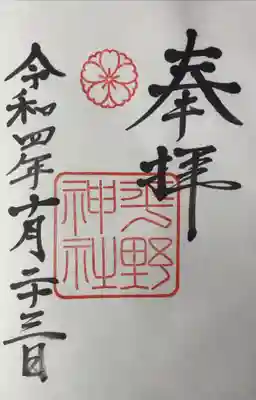 奉拝
平野
神社
令和四年十月二十三日